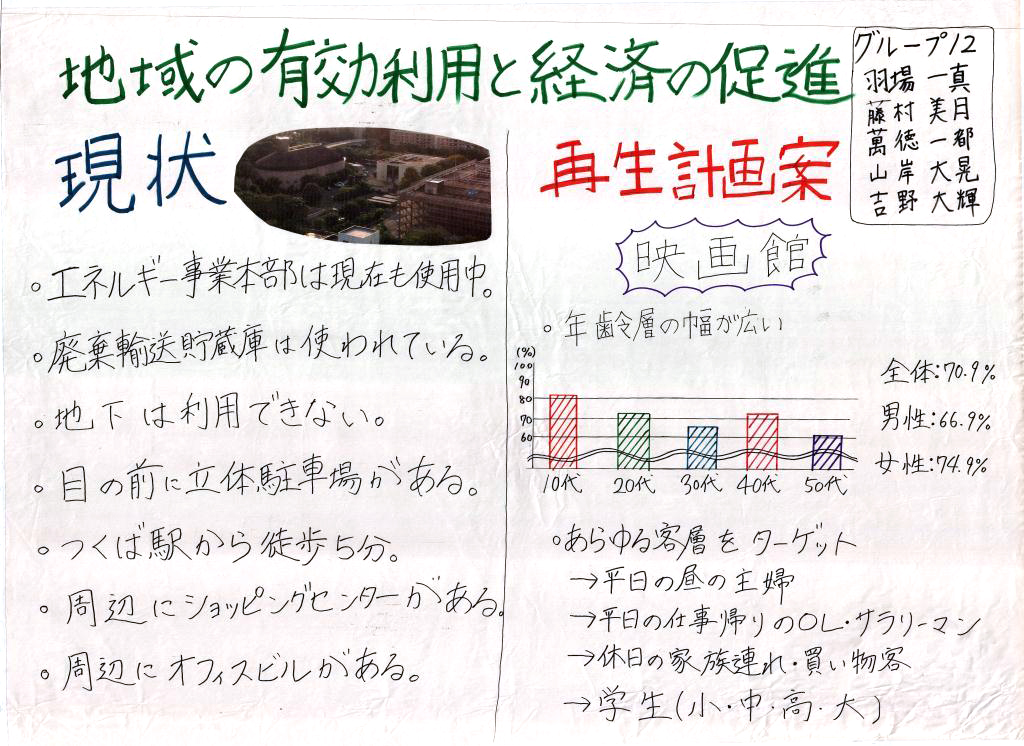 地域の有効利用と経済の促進
グループ12
羽場 一真
藤村 美月
萬徳 一都
山岸 大晃
吉野 大輝
現状
。エネルギー事業本部は現在も使用中。
。廃棄輸送貯蔵庫は使われている。
。地下は利用できない。
。目の前に立体駐車場がある。
。つくば駅から徒歩5分。
。周辺にショッピングセンターがある。
。周辺にオフィスビルがある。
再生計画案
映画館
。年齢層の幅が広い
(%)
100
90
80
70
60
10代 20代 30代 40代 50代
全体:70.9%
男性:66.9%
女性:74.9%
。あらゆる客層をターゲット
→平日の昼の主婦
→平日の仕事帰りのOL・サラリーマン
→休日の家族連れ・買い物客
→学生(小・中・高・大)